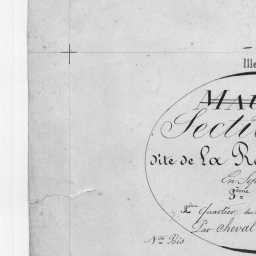 Ille
MAU
Secti
dite de La R
En
3ème
1ère quartier du
Par cheval
Nta Bis